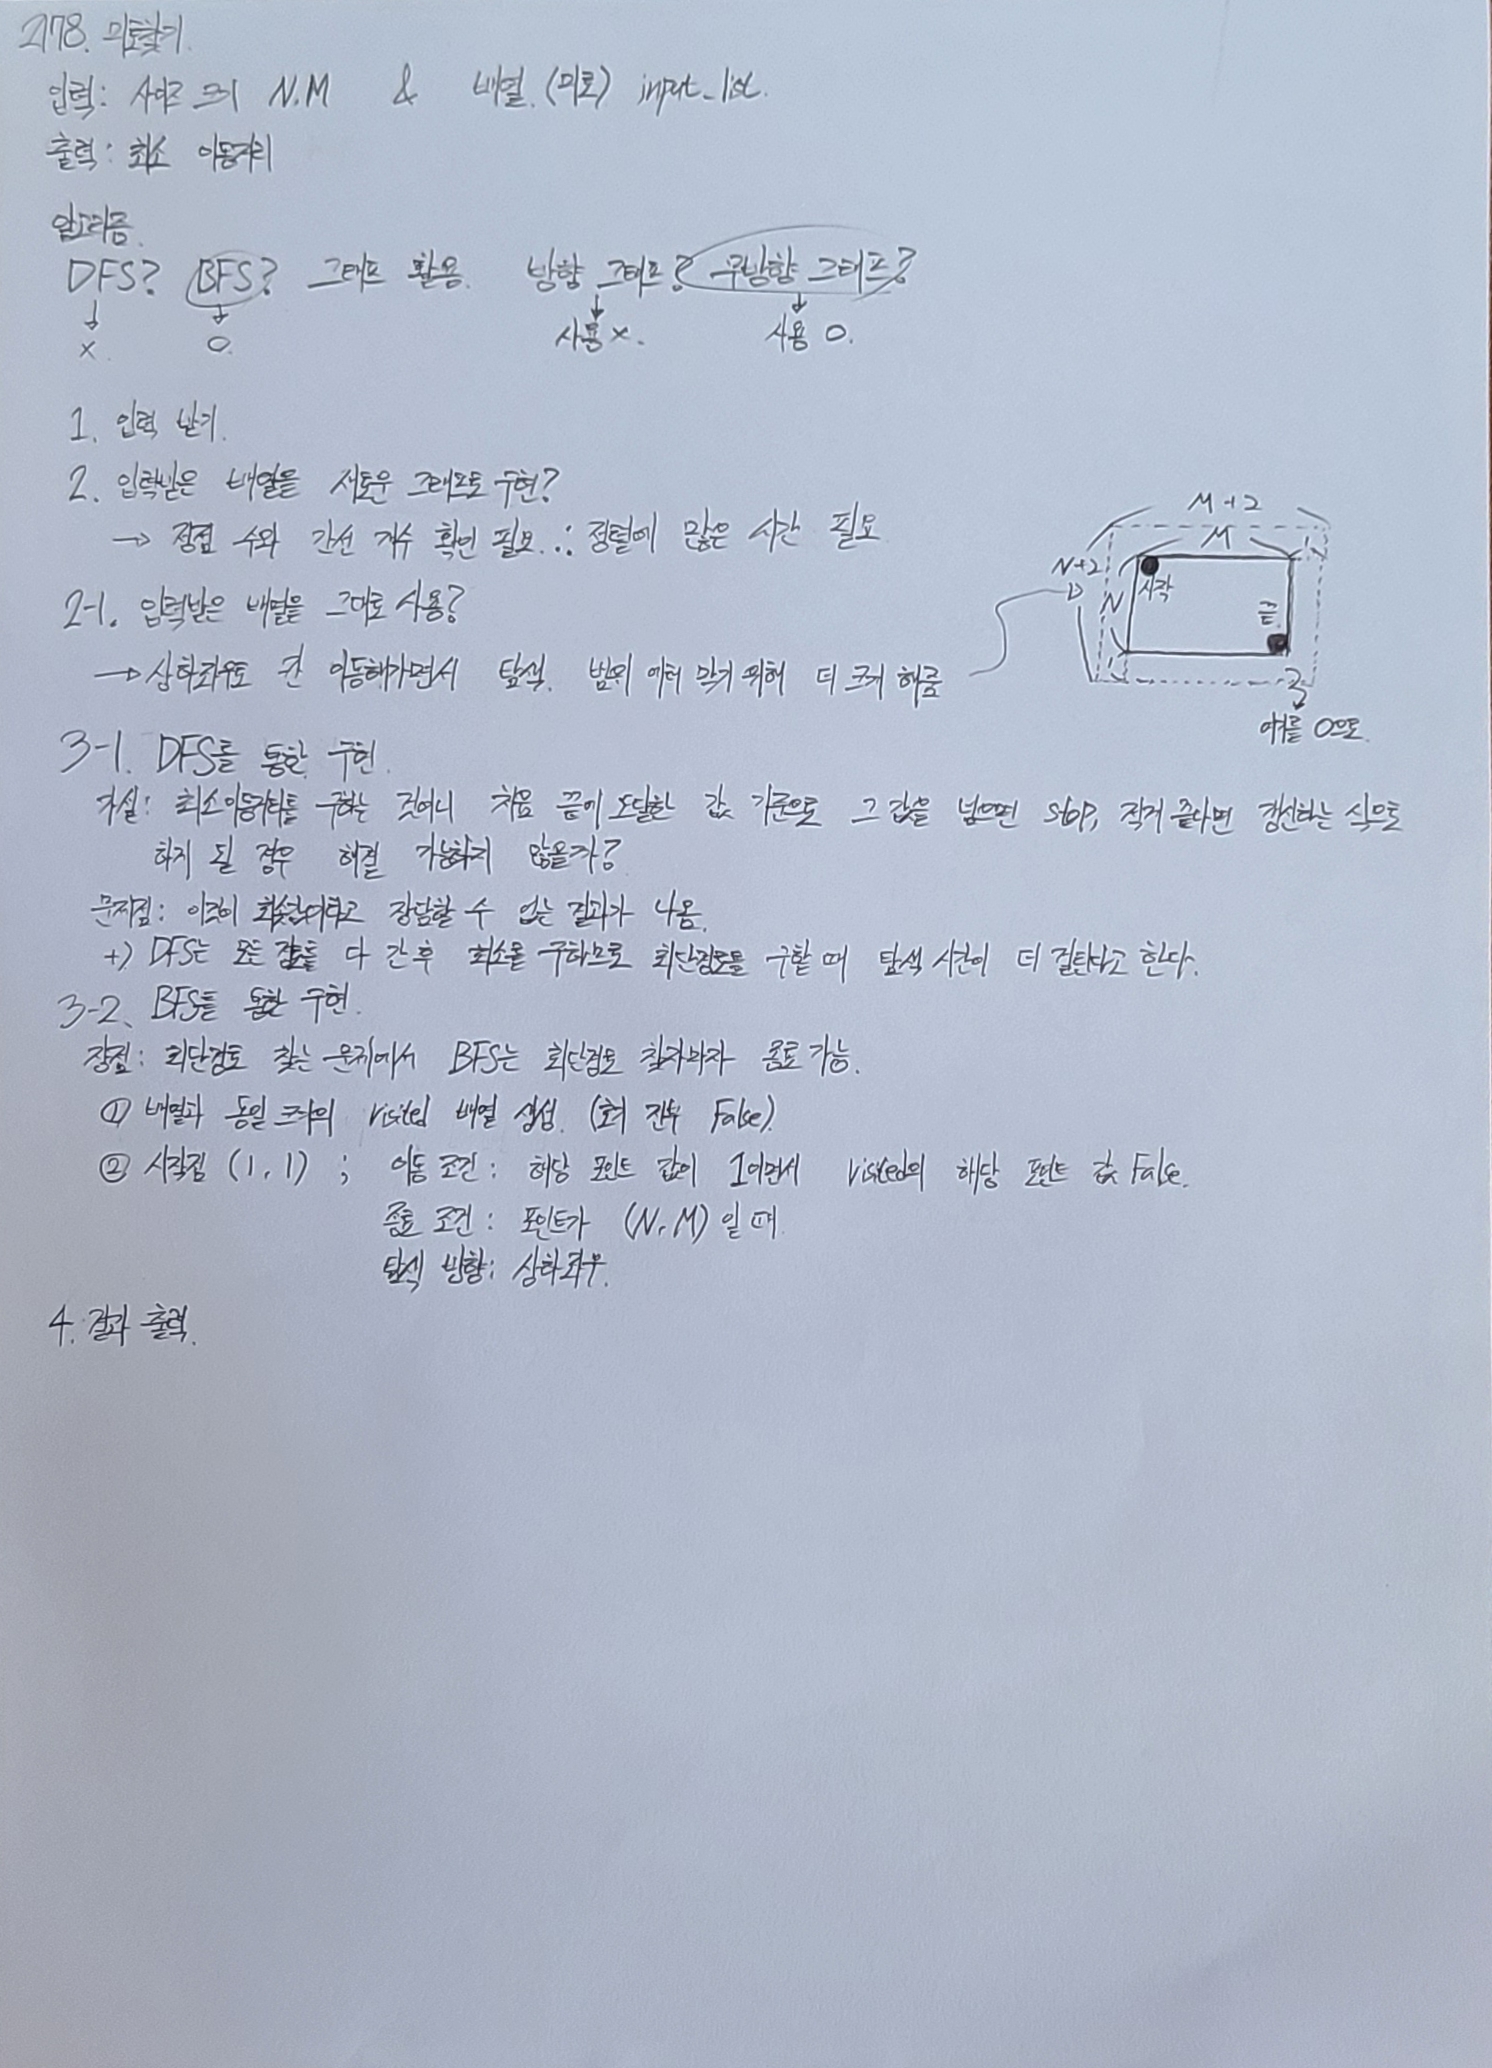 2178. 미로찾기.
입력: 사이즈 크기 N.M & 배열.(미로) input_list.
출력: 최소 이동거리
알고리즘.
DFS? BFS? 그래프 활용. 방향 그래프? 무방향 그래프?
x. O. 사용 x. 사용 O.
1. 입력 받기.
2. 입력받은 배열을 새로운 그래프로 구현?
→ 정점 수와 간선 개수 확인 필요. ∴ 정렬에 많은 시간 필요
M+2
M
N+2
N
시작
끝
2-1. 입력받은 배열을 그대로 사용?
→ 상하좌우로 칸 이동해가면서 탐색. 범위 에러 막기 위해 더 크게 해줌
여기를 0으로.
3-1. DFS를 통한 구현.
가설: 최소이동거리를 구하는 것이니 처음 끝에 도달한 값 기준으로 그 값을 넘으면 stop, 작게 준다면 갱신하는 식으로
하게 될 경우 해결 가능하지 않을까?
문제점: 이것이 최솟값이라고 장담할 수 없는 결과가 나옴.
+) DFS는 모든 값을 다 간 후 최소를 구하므로 최단경로를 구할 때 탐색 시간이 더 걸린다고 한다.
3-2. BFS를 통한 구현.
장점: 최단경로 찾는 문제에서 BFS는 최단경로 찾자마자 종료 가능.
① 배열과 동일 크기의 visited 배열 생성. (초기 전부 False).
② 시작점 (1, 1) ; 이동 조건: 해당 포인트 값이 1이면서 visited의 해당 포인트 값 False.
종료 조건: 포인트가 (N, M) 일 때.
탐색 방향: 상하좌우.
4. 결과 출력.